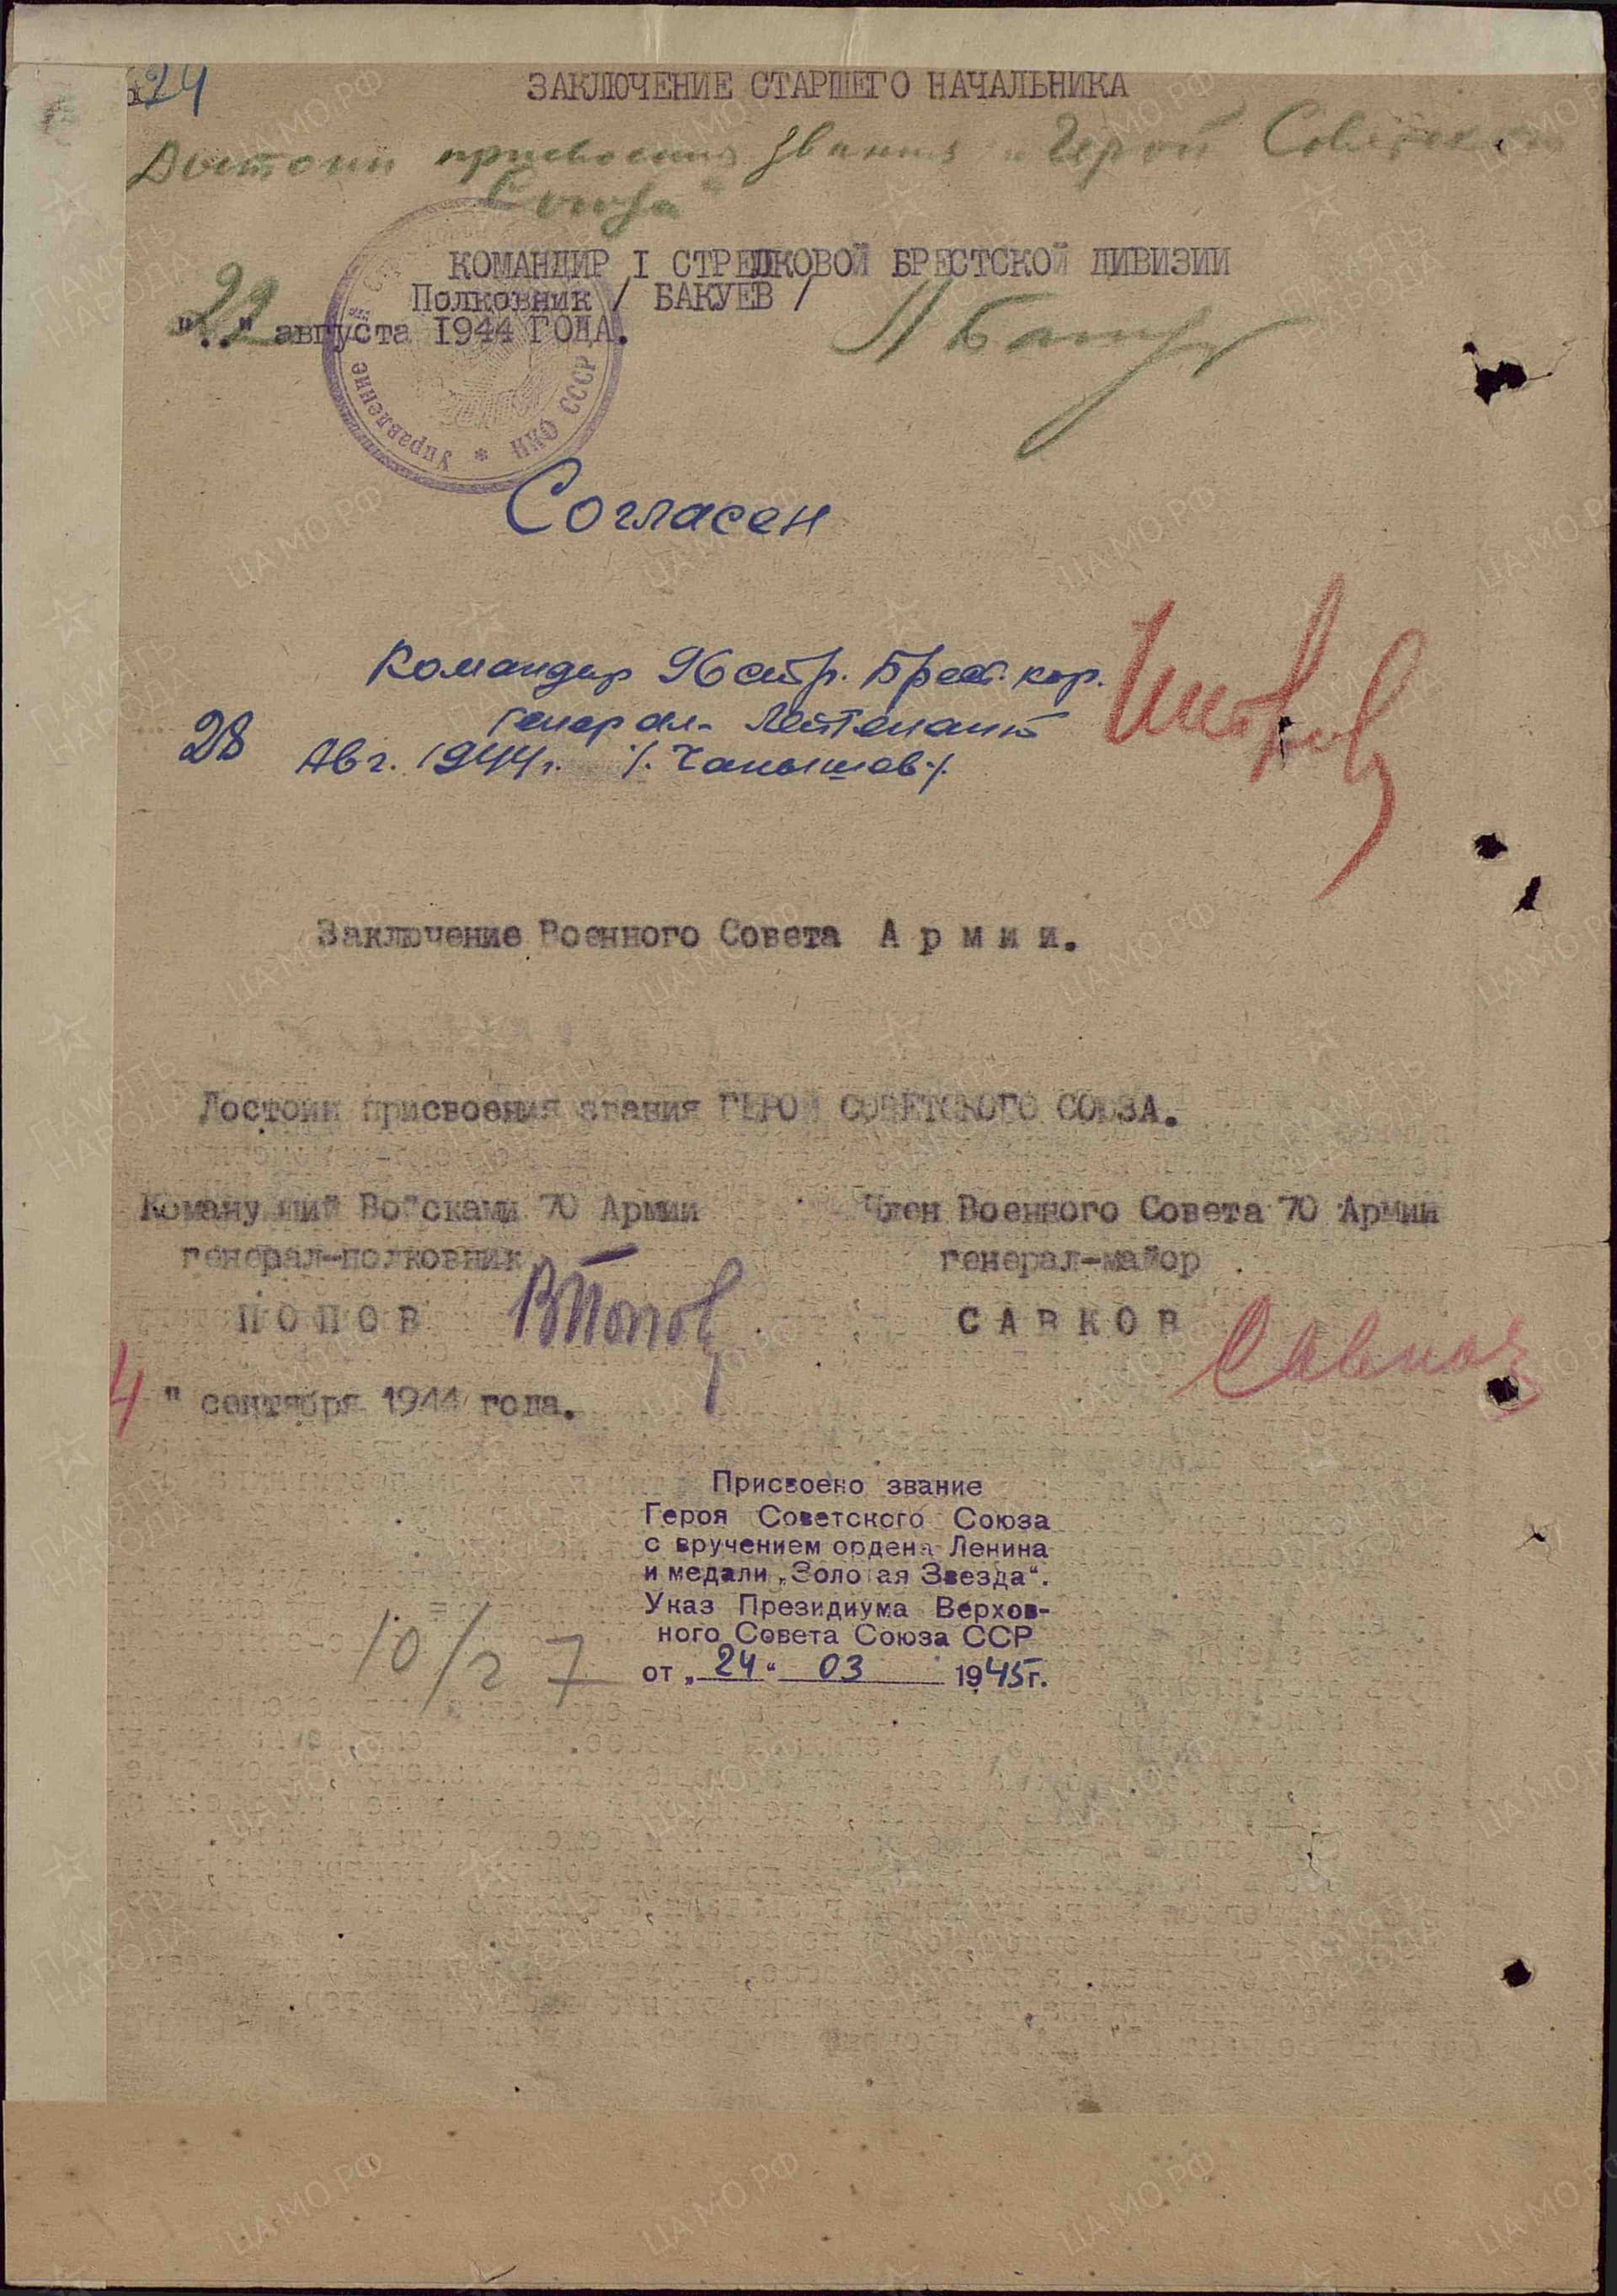 24
ЗАКЛЮЧЕНИЕ СТАРШЕГО НАЧАЛЬНИКА
Достоин присвоения звания „Герой Советского
Союза"
КОМАНДИР I СТРЕЛКОВОЙ БРЕСТСКОЙ ДИВИЗИИ
Полковник / БАКУЕВ /
"22" августа 1944 ГОДА.
Управление * НКО СССР
Согласен
Командир 96 стр. Брест. кор.
генерал-лейтенант
28 Авг. 1944г. /. Чанышев./
Заключение Военного Совета А р м и и.
Достоин присвоения звания ГЕРОЙ СОВЕТСКОГО СОЮЗА.
Команду щий Войсками 70 Армии
генерал-полковник
П О П О В
ВПопов
Член Военного Совета 70 Армии
генерал-майор
С А В К О В
Савков
4 " сентября 1944 года.
Присвоено звание
Героя Советского Союза
с вручением ордена Ленина
и медали „Золотая Звезда".
Указ Президиума Верхов-
ного Совета Союза ССР
от „24" 03 1945г.
10/2 7
ПАМЯТЬ НАРОДА
ЦАМО.РФ